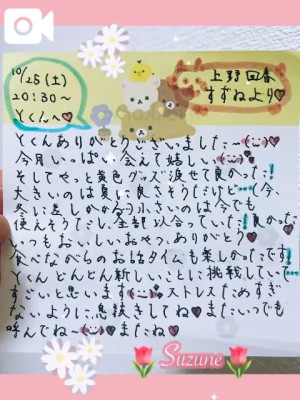 10/25(土)
20:30〜
Yくんへ♡
上野回春
すずねより♡
Yくんありがとうございました〜(¨̮)♡
今月いっぱい会えて嬉しい(¨̮)
そしてやっと黄色グッズ渡せて良かった!
大きいのは夏に良さそうだけど…(今、
冬に差しかかる)小さいのは今でも
使えそうだし、全部似合っていた!良かった♡
いつもおいしいおやつ、ありがとう♡
食べながらのお話タイムも楽しかったです!
Yくんどんどん新しいことに挑戦していて…
すごいと思います(¨̮)ストレスためすぎ
ないように息抜きしてね♡またいつでも
呼んでね〜(¨̮)♡またね♡
Suzune